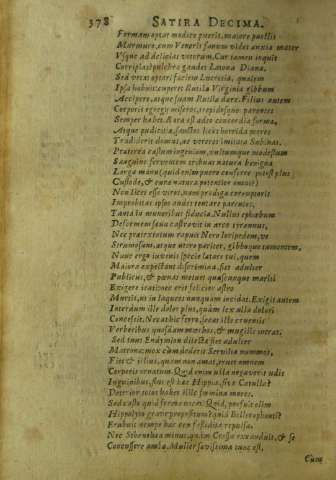 378 SATIRA DECIMA.
Formam optat modico pueris, maiore puellis
Murmure, cum Veneris fanum videt anxia mater
Vsque ad delicias votorum. Cur tamen inquit
Corripias? pulchra gaudet Latona Diana.
Sed vetat optari faciem Lucretia, qualem
Ipsa habuit: cuperet Rutilæ Virginia gibbum
Accipere, atque suam Rutilæ dare. Filius autem
Corporis egregij miseros, trepidosque parentes
Semper habet. Rara est adeo concordia formæ,
Atque pudicitiæ, sanctos licet horrida mores
Tradiderit domus, ac veteres imitata Sabinas.
Præterea castum ingenium, vultumque modestum
Sanguine ferventem tribuat natura benigna
Larga manu (quid enim puero conferre potest plus
Custode, & cura natura potentior omni?)
Non licet esse viros, nam prodiga corruptoris
Improbitas ipsos audet tentare parentes.
Tanta in muneribus fiducia. Nullus ephæbum
Deformem sæva castravit in arce tyrannus,
Nec prætextatum rapuit Nero loripedem, ve
Strumosum, atque utero pariter, gibboque tumentem.
Nunc ergo iuvenis specie lætare tui, quem
Maiora expectant discrimina. fiet adulter
Publicus, & pœnas metuet quascunque mariti
Exigere irati: nec erit felicior astro
Martis, ut in laqueos nunquam incidat. Exigit autem
Interdum ille dolor plus, quàm lex ulla dolori
Concessit. Necat hic ferro, secat ille cruentis
Verberibus quosdam mœchos, & mugilis intrat.
Sed tuus Endymion dilectæ fiet adulter
Matronæ: mox cùm dederit Servilia nummos,
Fiet & illius, quam non amat, exuet omnem
Corporis ornatum. Quid enim ulla negaverit udis
Inguinibus, sive est hæc Hippia, sive Catulla?
Deterior totos habet illic fœmina mores.
Sed casto quid forma nocet? Quid, profuit olim
Hippolyto grave propositum? quid Bellerophonti?
Erubuit nempe hæc ceu fastidita repulsa.
Nec Sthenobœa minus, quàm Cressa excanduit, & se
Concussere ambæ. Mulier sævissima tunc est,
Cùm